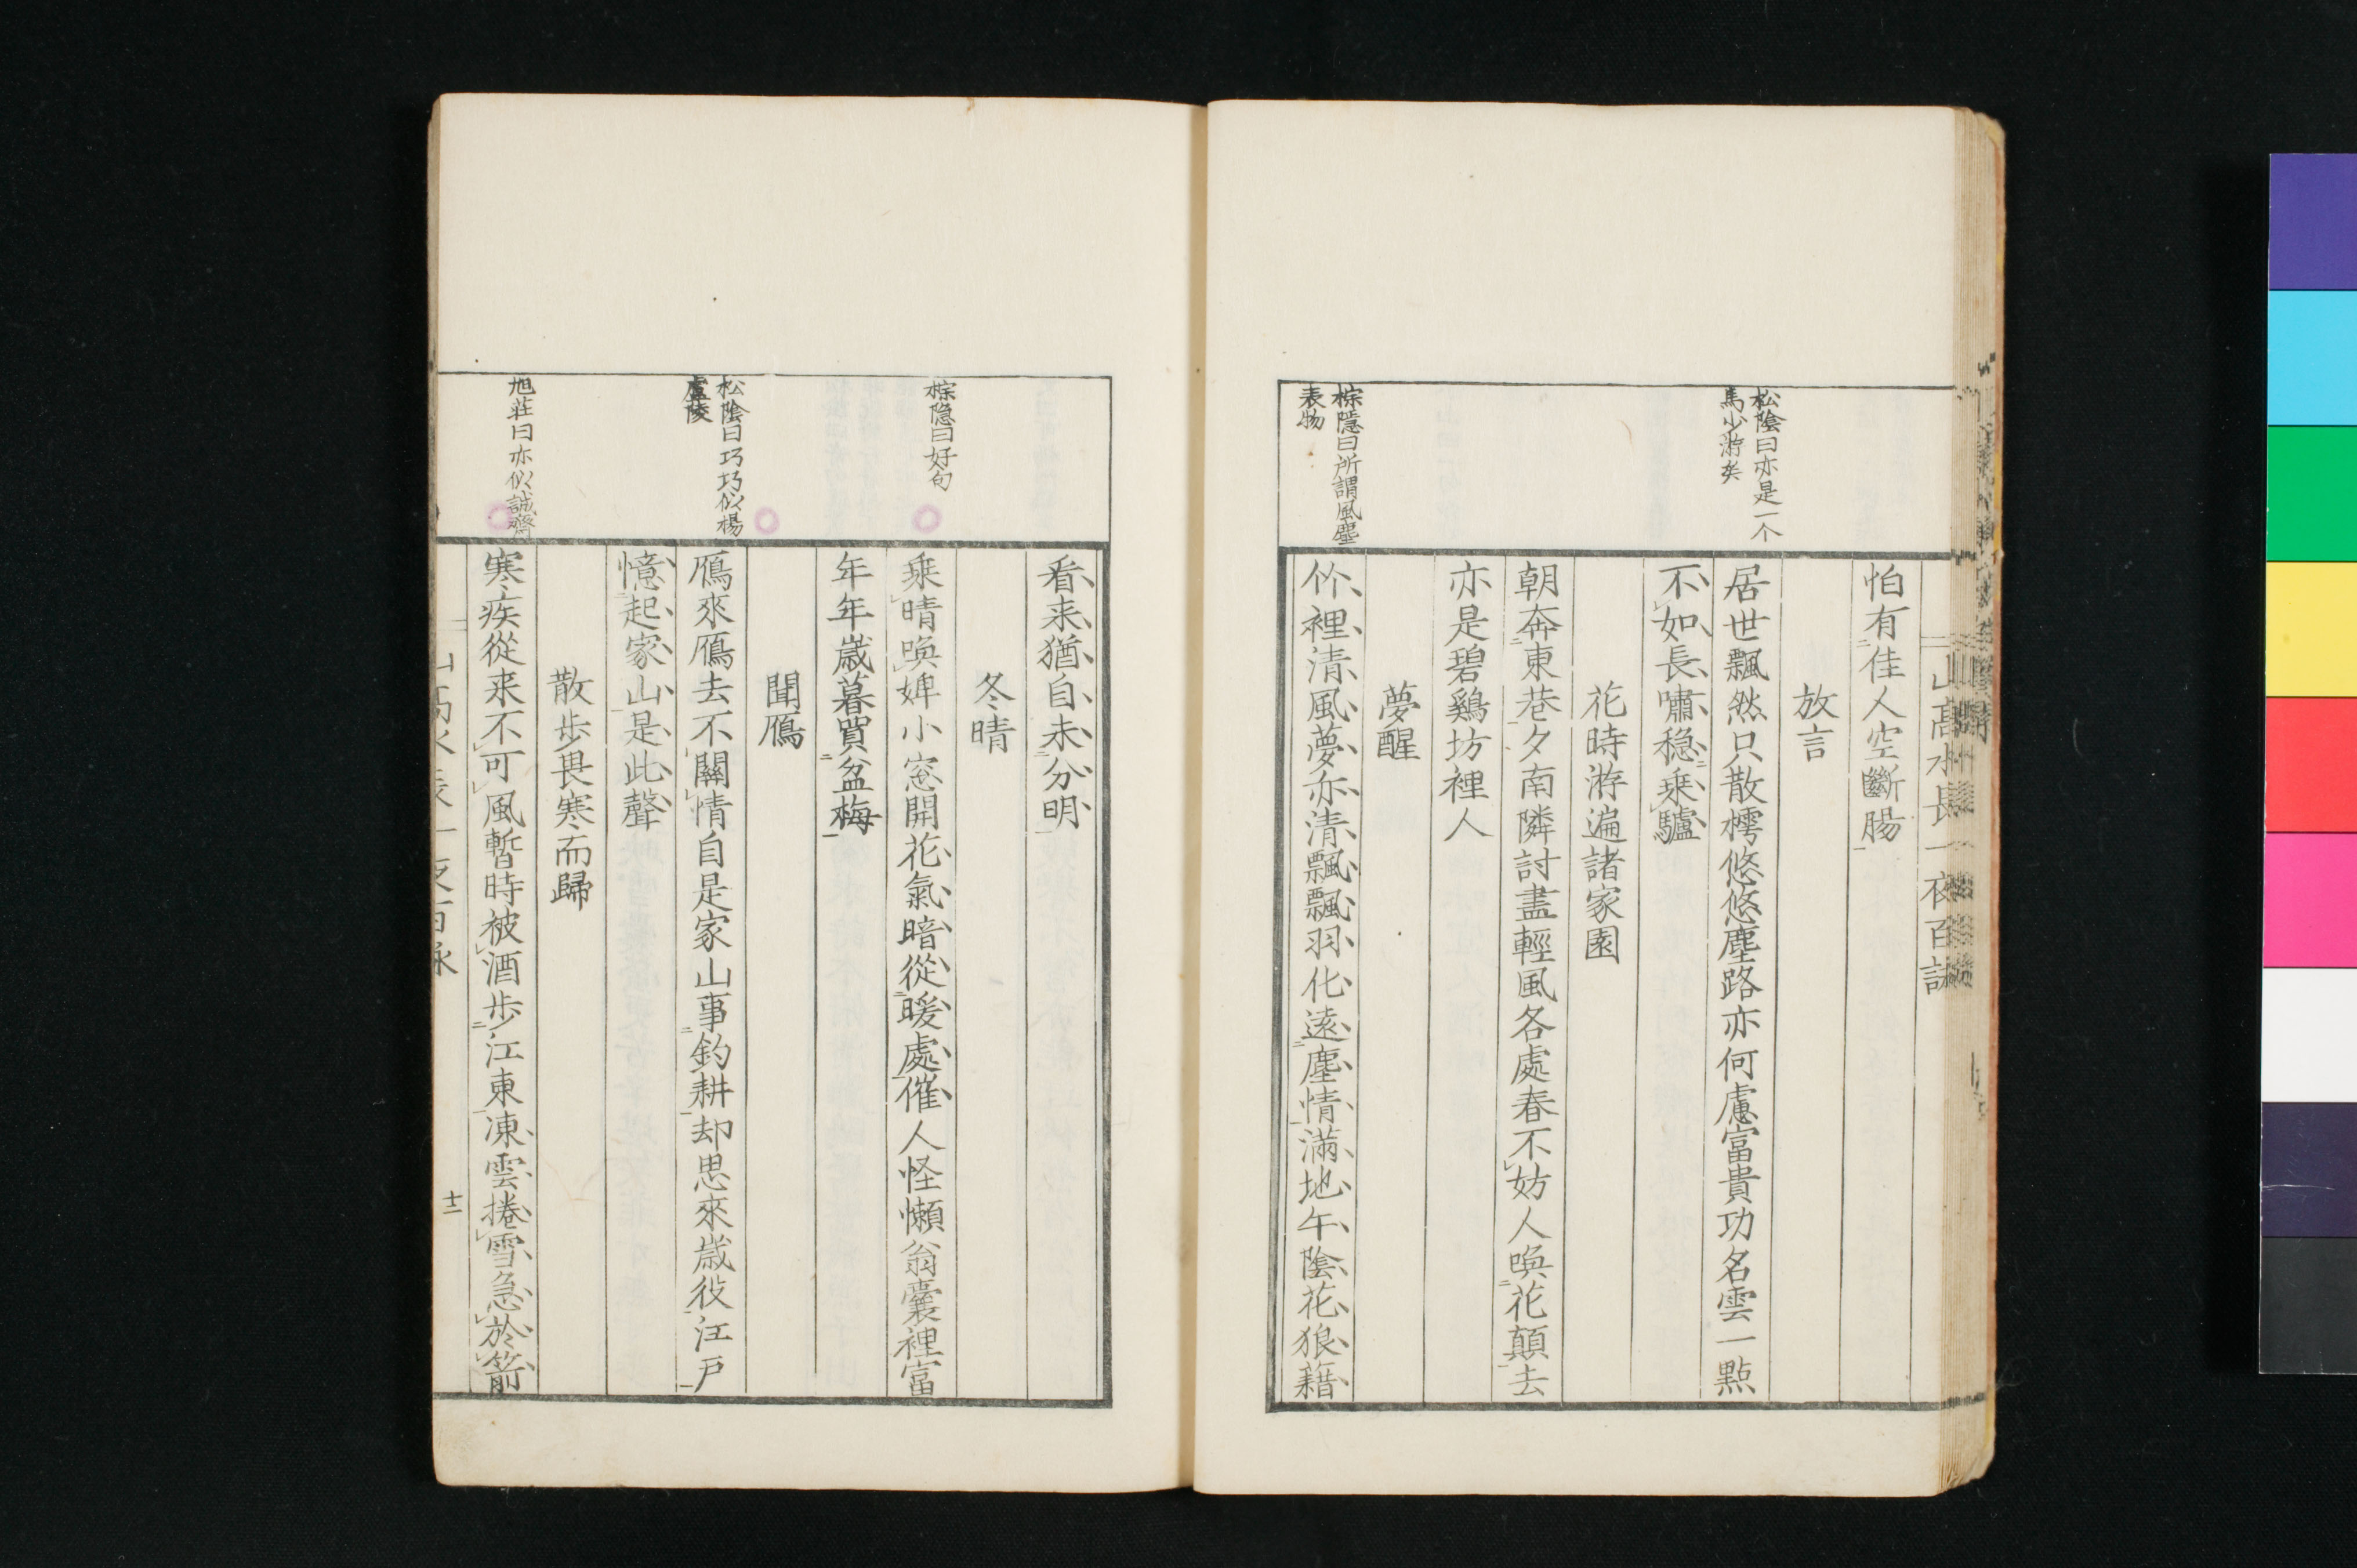 山高水長一夜百詠
怕有佳人空斷腸
放言
松陰曰亦是一个
馬少游矣
居世飄然只散樗悠悠塵路亦何慮富貴功名雲一點
不如長嘯穏乗驢
花時游遍諸家園
朝奔東巷夕南隣討盡輕風各處春不妨人喚花顛去
亦是碧鷄坊裡人
夢醒
棕隱曰所謂風塵
表物
竹裡清風夢亦清飄飄羽化遠塵情滿地午陰花狼籍
看来猶自未分明
冬晴
棕隠曰好句
乗晴喚婢小窓開花氣暗從暖處催人怪懶翁囊裡富
年年歳暮買盆梅
聞鴈
松陰曰巧巧似楊
盧陵
鴈來鴈去不關情自是家山事釣耕却思來歳役江戸
憶起家山是此聲
散歩畏寒而歸
旭荘曰亦似誠齋
寒疾從来不可風暫時被酒歩江東凍雲捲雪急於箭
山高水長一夜百詠
十二